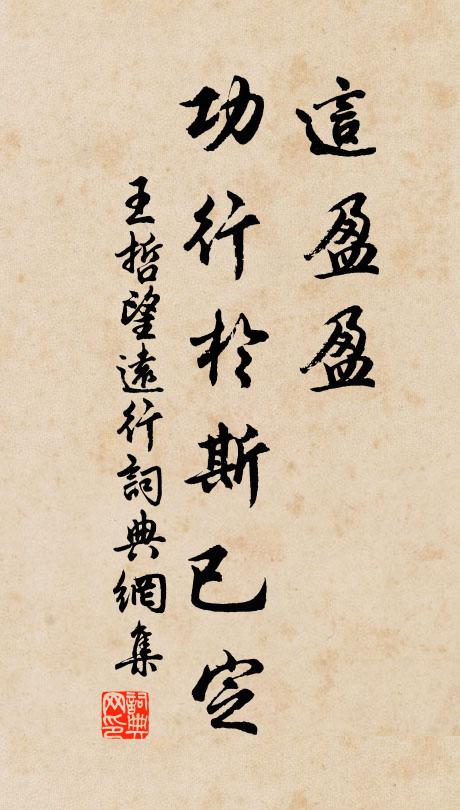 這盈盈
功行於斯已定
王哲望遠行詞典網集
詞典
网印